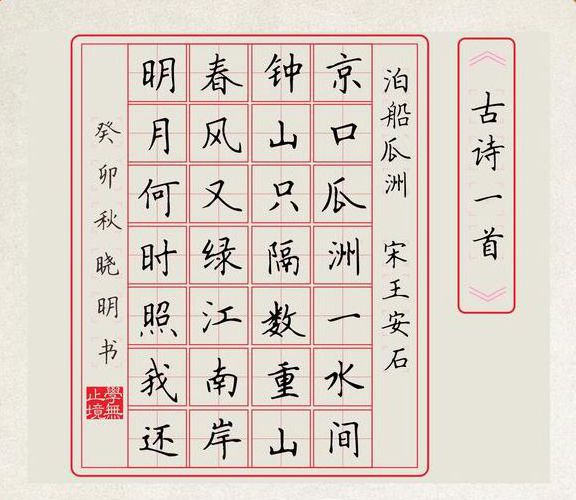 《古诗一首》
泊船瓜洲 宋 王安石
京口瓜洲一水间
钟山只隔数重山
春风又绿江南岸
明月何时照我还
癸卯秋晓明书
學無止境